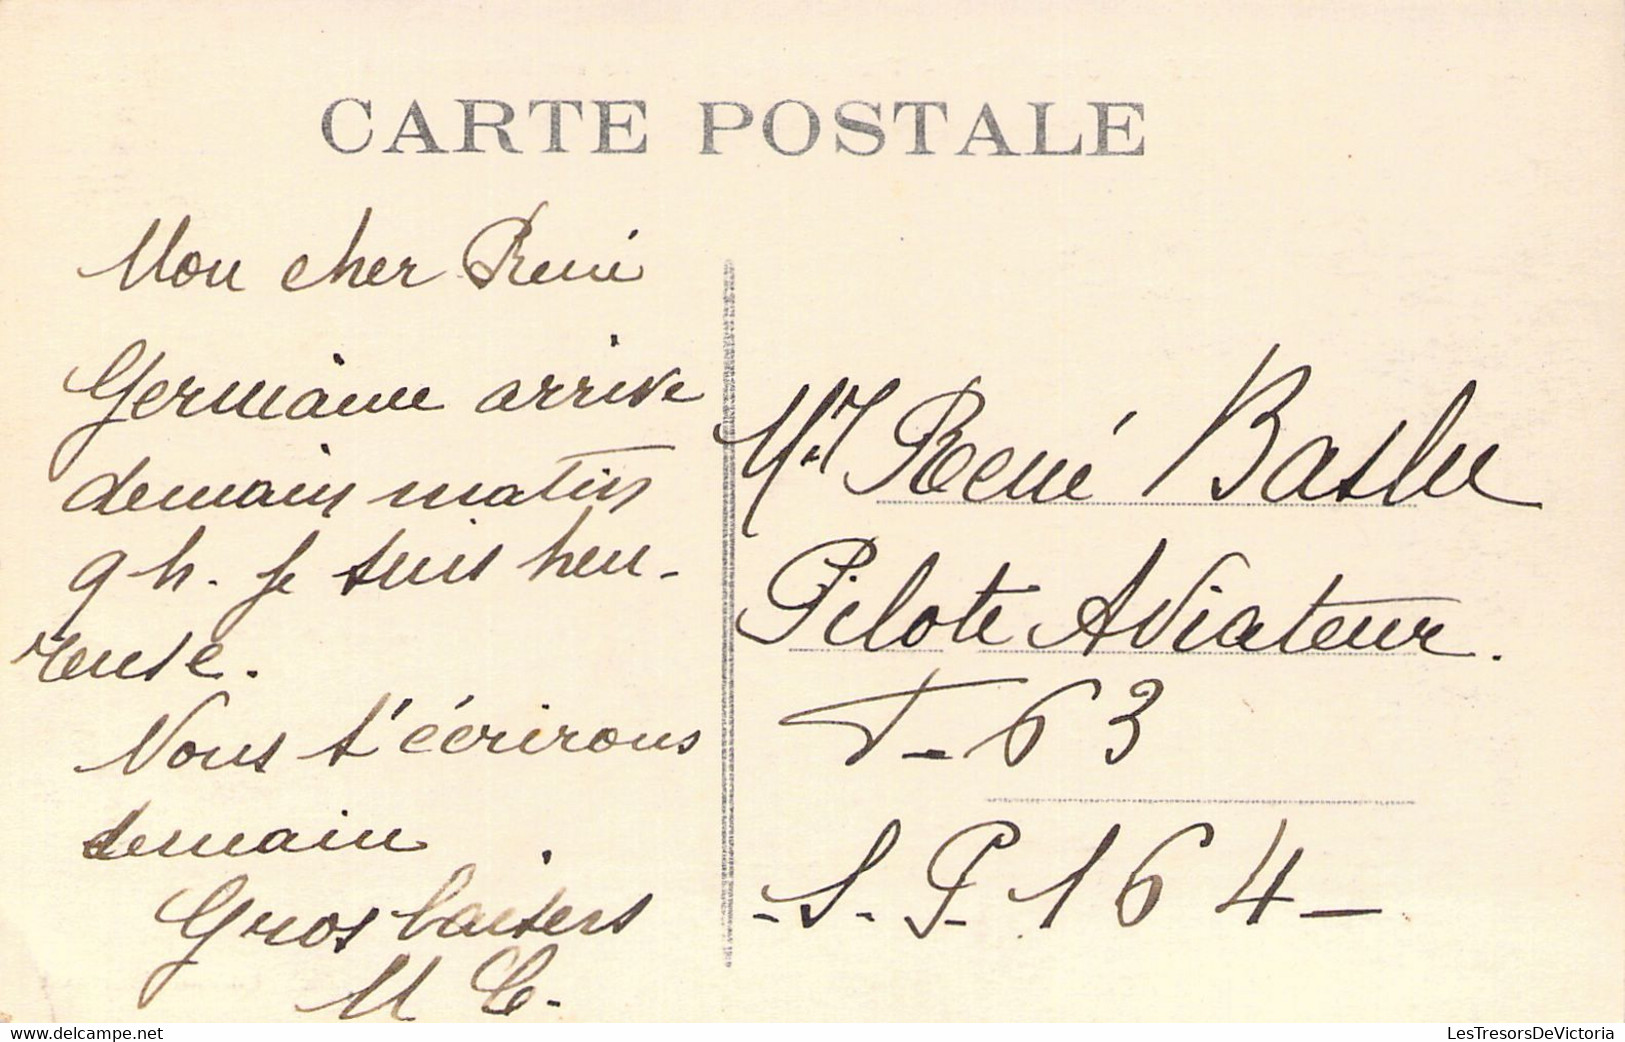 CARTE POSTALE
Mon cher René
Germaine arrive
demain matin
9 h. Je suis heu-
reuse.
Nous t'écrirons
demain
Gros baisers
M
Mr René
Pilote Aviateur.
T-63
-S.P. 164-
www.delcampe.net
LesTresorsDeVictoria